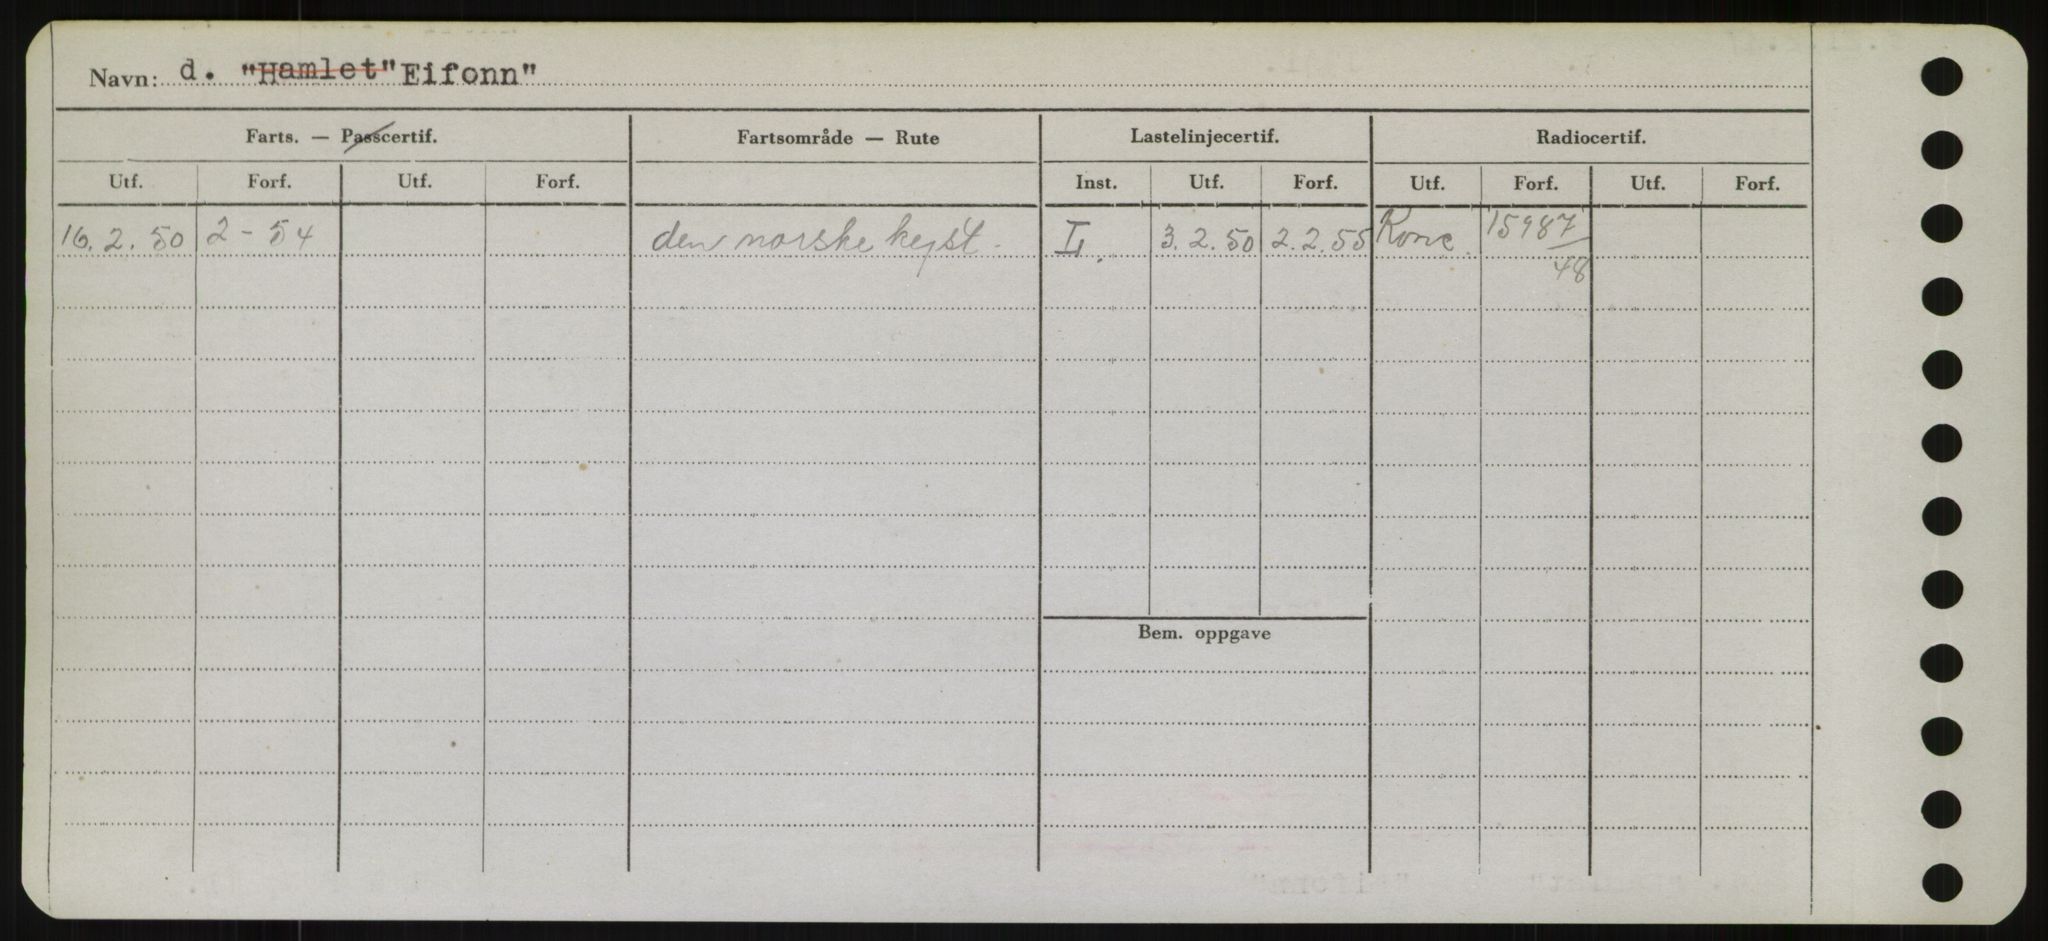 Navn: d. "Hamlet" Eifonn"
Farts. — Passcertif. Fartsområde — Rute Lastelinjecertif. Radiocertif.
Utf. Forf. Utf. Forf. Inst. Utf. Forf. Utf. Forf. Utf. Forf.
16.2.50 2-54 den norske kyst. I. 3.2.50 2.2.55 Konc. 15987/48
Bem. oppgave